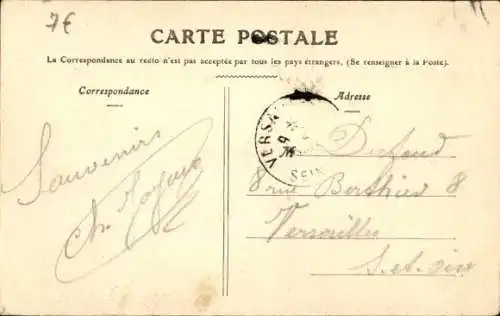 7€
CARTE POSTALE
La Correspondance au recto n'est pas acceptée par tous les pays étrangers. (Se renseigner à la Poste).
Correspondance
Adresse
VERSA
SEIN
Souvenirs
Ch.
8 rue Berthier 8
Versailles
S. et Oise